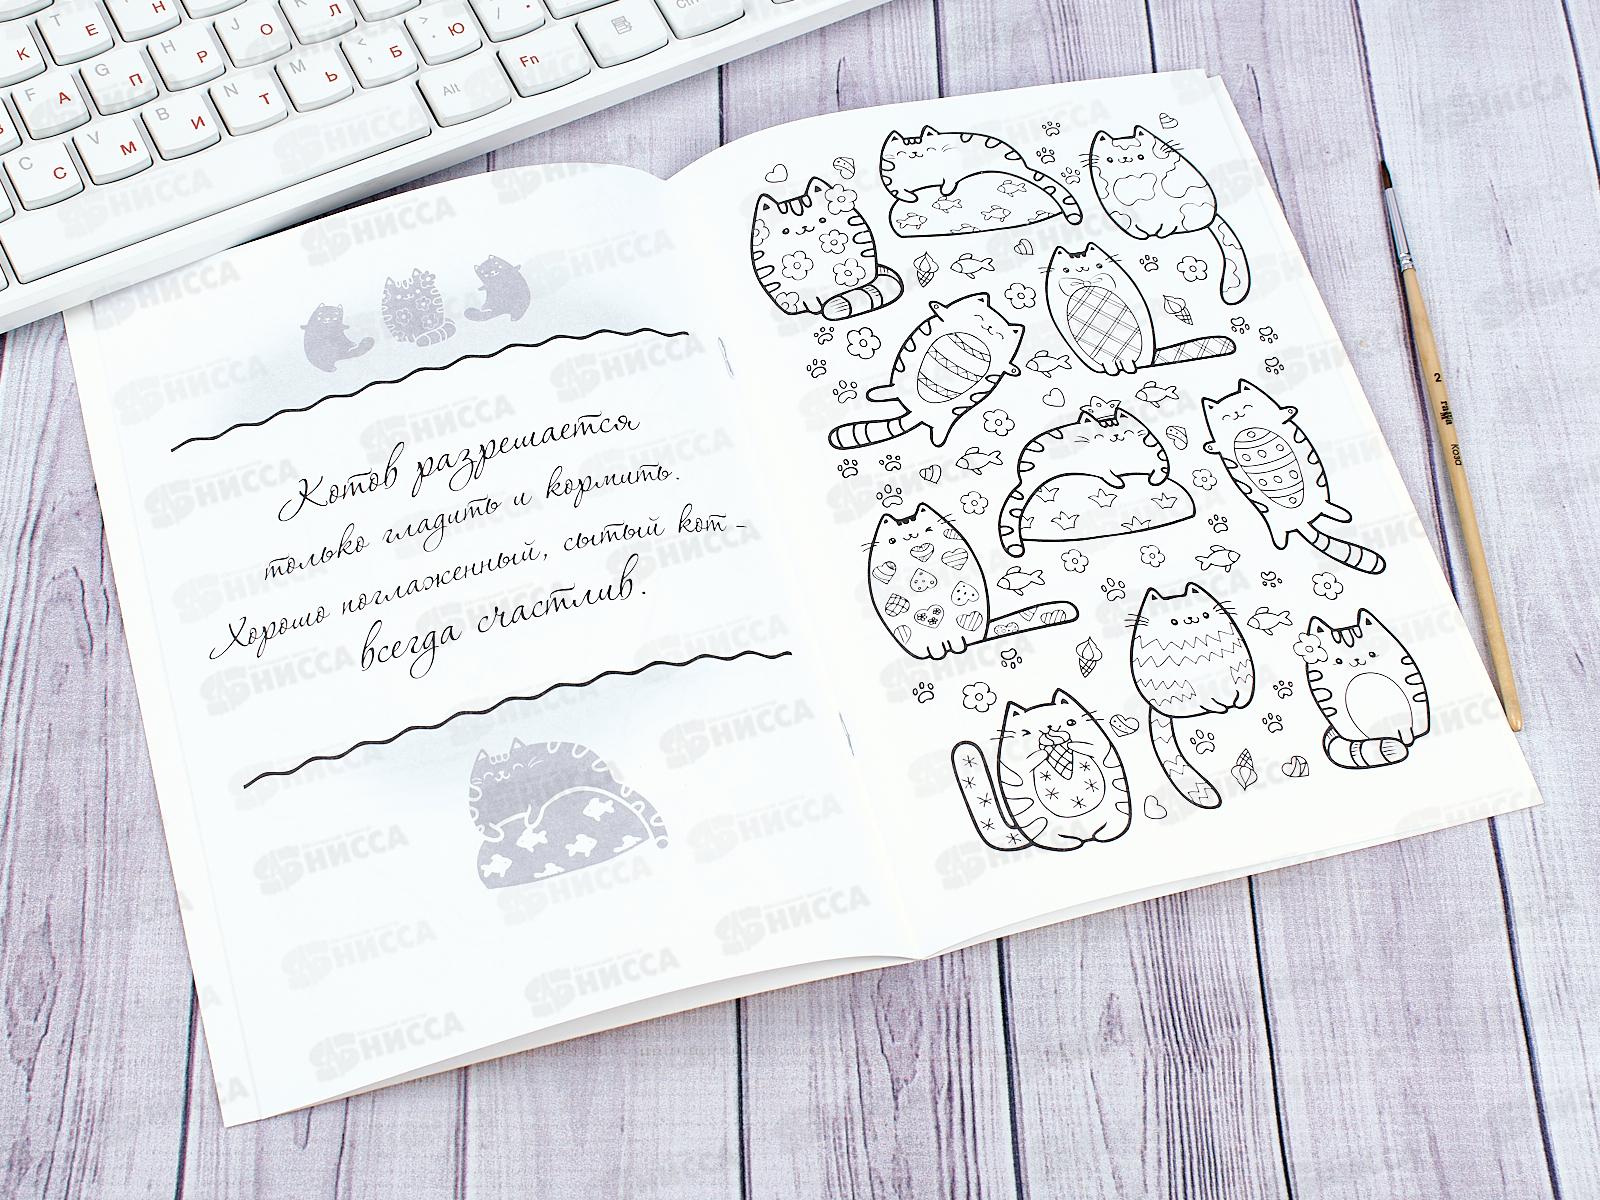 К Е Н
Г Н J О Л
K L Д
Б Ю
F А G П Р
М Ь
C С V М B И N Т
Alt
Fn
Котов разрешается
только гладить и кормить.
Хорошо поглаженный, сытый кот -
всегда счастлив.
2
гамма
коза
НИССА